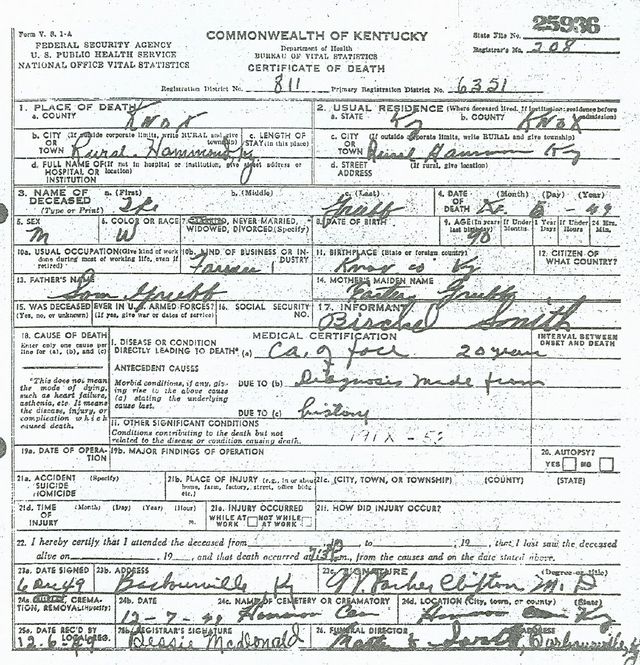 Form V. S. 1-A
FEDERAL SECURITY AGENCY
U. S. PUBLIC HEALTH SERVICE
NATIONAL OFFICE VITAL STATISTICS
COMMONWEALTH OF KENTUCKY
Department of Health
BUREAU OF VITAL STATISTICS
CERTIFICATE OF DEATH
State File No. 25936
Registrar's No. 208
Registration District No. 811 Primary Registration District No. 6351
1. PLACE OF DEATH
a. COUNTY Knox
2. USUAL RESIDENCE (Where deceased lived. If institution: residence before admission)
a. STATE Ky b. COUNTY Knox
b. CITY (If outside corporate limits, write RURAL and give township) OR TOWN Rural Hammond Ky
c. LENGTH OF STAY (in this place)
c. CITY (If outside corporate limits, write RURAL and give township) OR TOWN Rural Hammon Ky
d. FULL NAME OF (If not in hospital or institution, give street address or location) HOSPITAL OR INSTITUTION
d. STREET ADDRESS (If rural, give location)
3. NAME OF DECEASED (Type or Print)
a. (First)
b. (Middle)
c. (Last) Grubb
4. DATE OF DEATH (Month) (Day) (Year) 5 - 49
5. SEX M
6. COLOR OR RACE W
7. MARRIED, NEVER MARRIED, WIDOWED, DIVORCED (Specify)
8. DATE OF BIRTH
9. AGE (In years last birthday) 90 If Under 1 Year Months Days If Under 24 Hrs. Hours Min.
10a. USUAL OCCUPATION (Give kind of work done during most of working life, even if retired)
10b. KIND OF BUSINESS OR INDUSTRY Farmer
11. BIRTHPLACE (State or foreign country) Knox co Ky
12. CITIZEN OF WHAT COUNTRY?
13. FATHER'S NAME Sam Grubb
14. MOTHER'S MAIDEN NAME Grubb
15. WAS DECEASED EVER IN U. S. ARMED FORCES? (Yes, no, or unknown) (If yes, give war or dates of service)
16. SOCIAL SECURITY NO.
17. INFORMANT Birchel Smith
18. CAUSE OF DEATH
Enter only one cause per line for (a), (b), and (c)
MEDICAL CERTIFICATION
INTERVAL BETWEEN ONSET AND DEATH
I. DISEASE OR CONDITION DIRECTLY LEADING TO DEATH* (a) Ca. of face 20 years
*This does not mean the mode of dying, such as heart failure, asthenia, etc. It means the disease, injury, or complication which caused death.
ANTECEDENT CAUSES
Morbid conditions, if any, giving rise to the above cause (a) stating the underlying cause last.
DUE TO (b) Diagnosis made from
DUE TO (c) history
II. OTHER SIGNIFICANT CONDITIONS
Conditions contributing to the death but not related to the disease or condition causing death.
19a. DATE OF OPERATION
19b. MAJOR FINDINGS OF OPERATION
20. AUTOPSY? YES NO
21a. ACCIDENT SUICIDE HOMICIDE (Specify)
21b. PLACE OF INJURY (e.g., in or about home, farm, factory, street, office bldg., etc.)
21c. (CITY, TOWN, OR TOWNSHIP) (COUNTY) (STATE)
21d. TIME OF INJURY (Month) (Day) (Year) (Hour) m.
21e. INJURY OCCURRED WHILE AT WORK NOT WHILE AT WORK
21f. HOW DID INJURY OCCUR?
22. I hereby certify that I attended the deceased from , 19 , to , 19 , that I last saw the deceased
alive on , 19 , and that death occurred at m., from the causes and on the date stated above.
23a. DATE SIGNED 6 Dec 49
23b. ADDRESS Barbourville K
23c. SIGNATURE Clifton M. D (Degree or title)
24a. BURIAL, CREMATION, REMOVAL (Specify)
24b. DATE 12-7-49
24c. NAME OF CEMETERY OR CREMATORY Hammon Cem
24d. LOCATION (City, town, or county) (State) Ky
25a. DATE REC'D BY LOCAL REG. 12-6-49
25b. REGISTRAR'S SIGNATURE Bessie McDonald
26. FUNERAL DIRECTOR ADDRESS Barbourville Ky